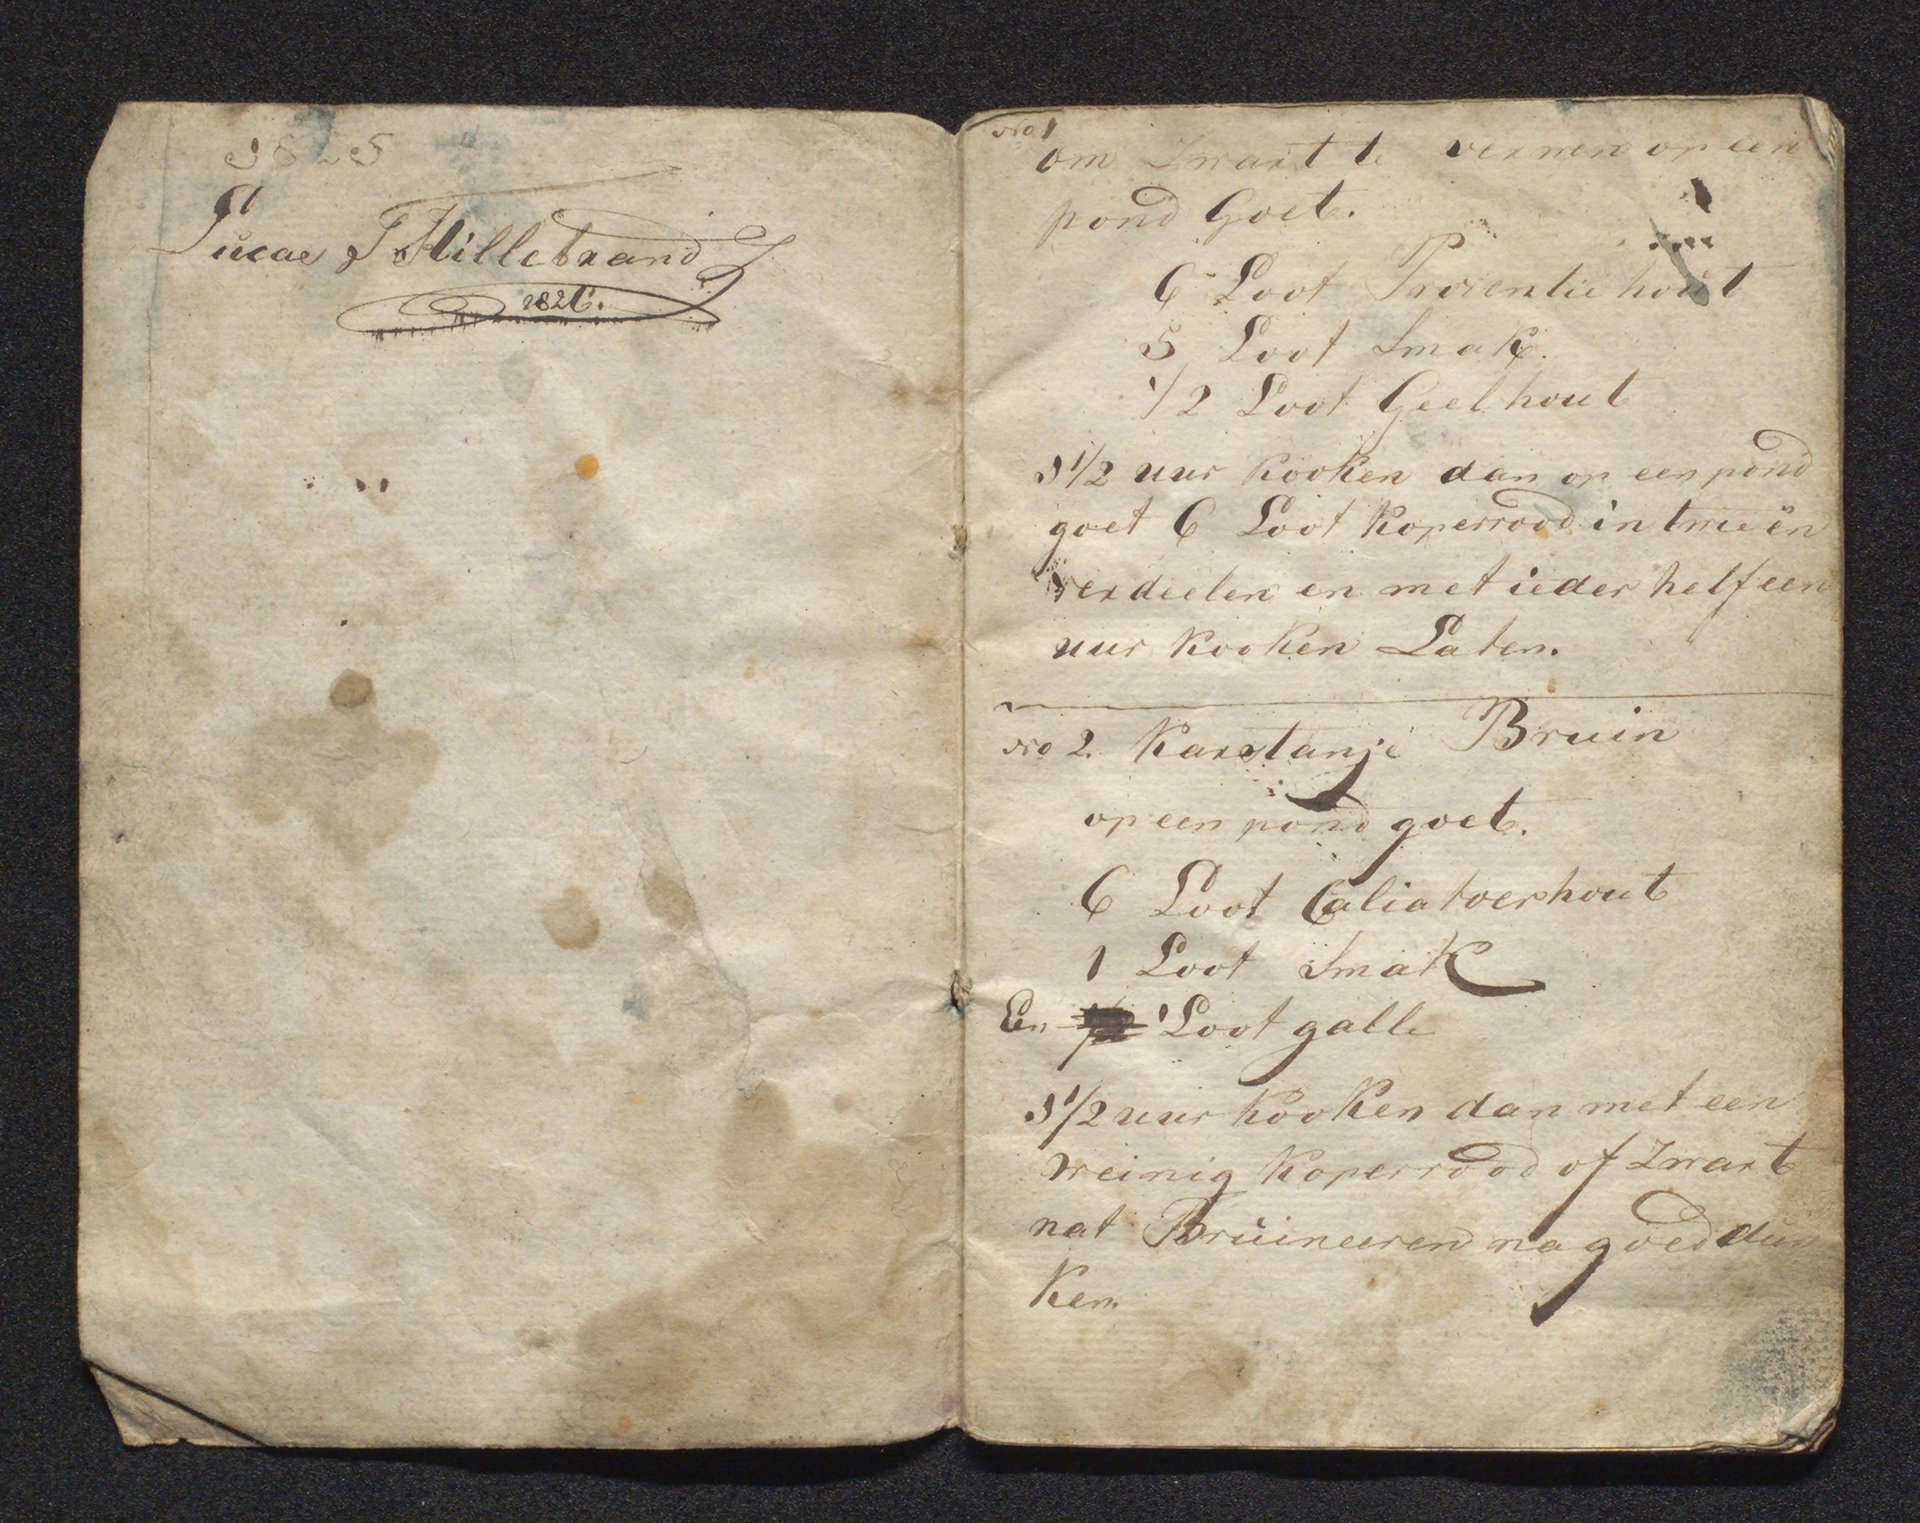 1825
Lucas J Hillebrand
1826.
No 1
om Zwart te verwen op een
pond Goet.
6 Loot Provintie hout
5 Loot Smak.
1/2 Loot Geel hout
1 1/2 uur kooken dan op een pond
goet 6 Loot koperrood in twieën
verdeelen en met ieder helf een
uur kooken Laten.
No 2. Karstanje Bruin
op een pond goet.
6 Loot Caliatoerhout
1 Loot Smak
En 1 Loot galle
1 1/2 uur kooken dan met een
weinig koperrood of Zwart
nat Bruineeren na goed dun
ken.